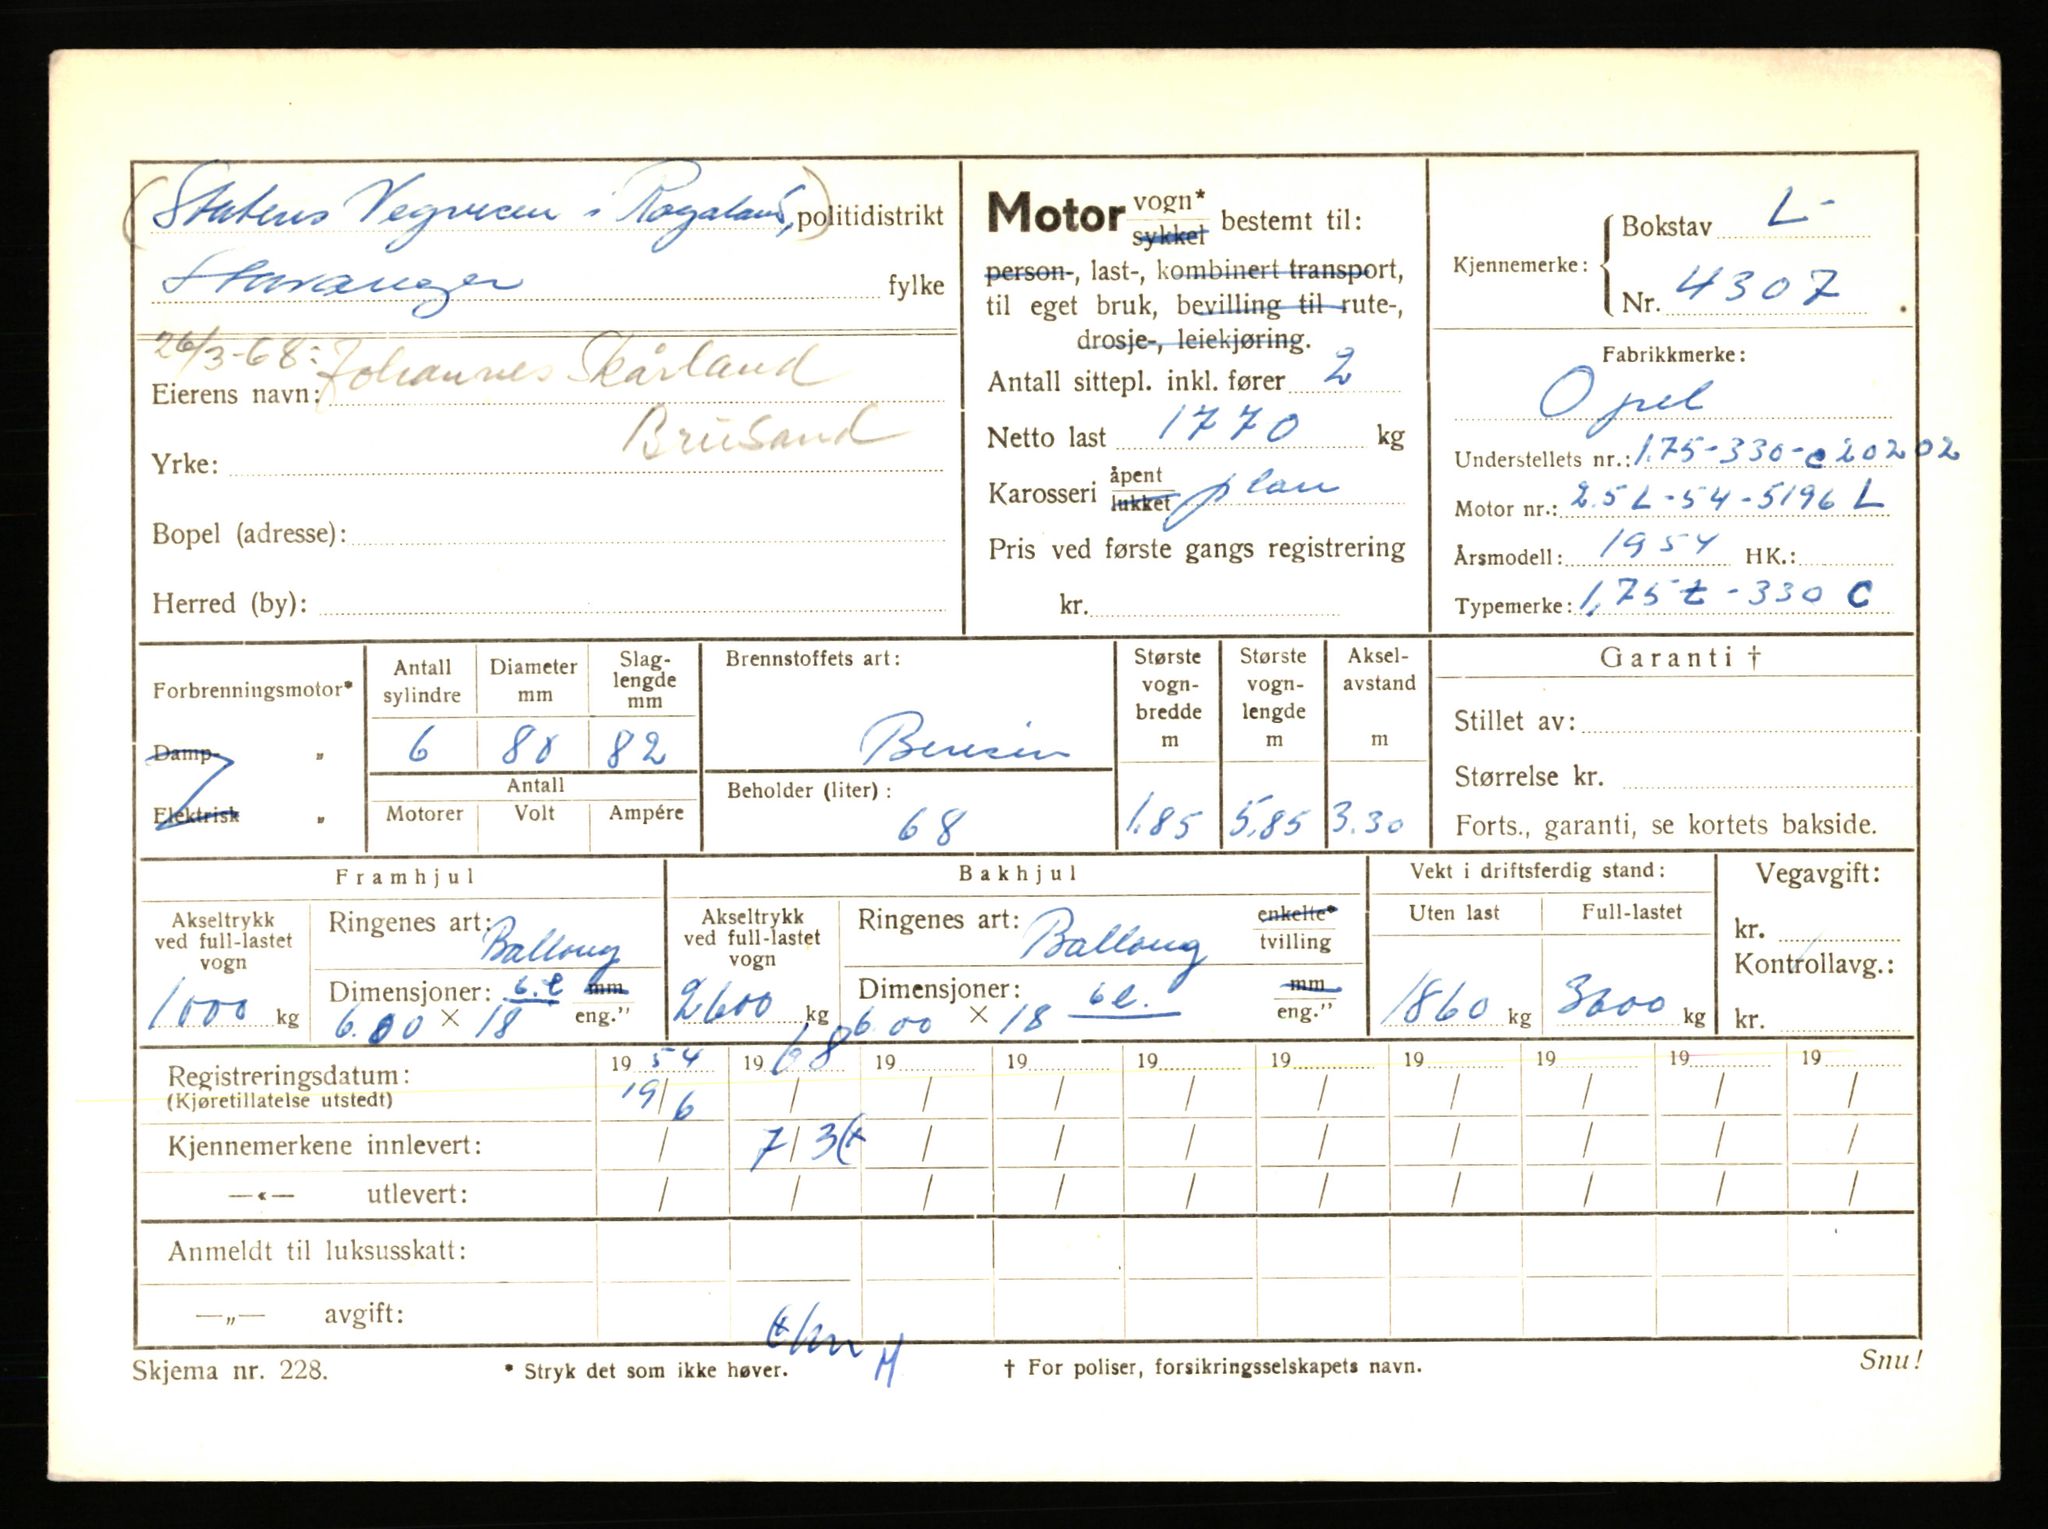 (Statens Vegvesen i Rogaland,) politidistrikt
Stavanger fylke
26/3-68: Johannes Skårland
Eierens navn:
Brusand
Yrke:
Bopel (adresse):
Herred (by):
Motor vogn* sykkel bestemt til:
person-, last-, kombinert transport,
til eget bruk, bevilling til rute-,
drosje-, leiekjøring.
Antall sittepl. inkl. fører 2
Netto last 1770 kg
Karosseri åpent lukket plan
Pris ved første gangs registrering
kr.
Kjennemerke: Bokstav L-
Nr. 4307
Fabrikkmerke:
Opel
Understellets nr.: 1.75-330-c20202
Motor nr.: 2.5L-54-5196L
Årsmodell: 1954 HK.:
Typemerke: 1,75 t-330 C
Forbrenningsmotor*
Damp- „
Elektrisk „
Antall sylindre
6
Diameter mm
80
Slag-lengde mm
82
Antall
Motorer Volt Ampére
Brennstoffets art:
Bensin
Beholder (liter):
68
Største vogn-bredde m
1.85
Største vogn-lengde m
5.85
Aksel-avstand m
3.30
Garanti †
Stillet av:
Størrelse kr.
Forts., garanti, se kortets bakside.
Framhjul
Akseltrykk ved full-lastet vogn
1000 kg
Ringenes art: Ballong
Dimensjoner: 6.l mm
6.00 × 18 eng."
Bakhjul
Akseltrykk ved full-lastet vogn
2600 kg
Ringenes art: Ballong enkelte* tvilling
Dimensjoner: 6l. mm
6.00 × 18 eng."
Vekt i driftsferdig stand:
Uten last Full-lastet
1860 kg 3600 kg
Vegavgift:
kr.
Kontrollavg.:
kr.
19 54 19 68 19 19 19 19 19 19 19 19
Registreringsdatum: 19/6 / / / / / / / / /
(Kjøretillatelse utstedt)
Kjennemerkene innlevert: / 7/3 / / / / / / / /
—«— utlevert: / / / / / / / / / /
Anmeldt til luksusskatt:
—„— avgift:
Skjema nr. 228.
* Stryk det som ikke høver.
† For poliser, forsikringsselskapets navn.
Snu!